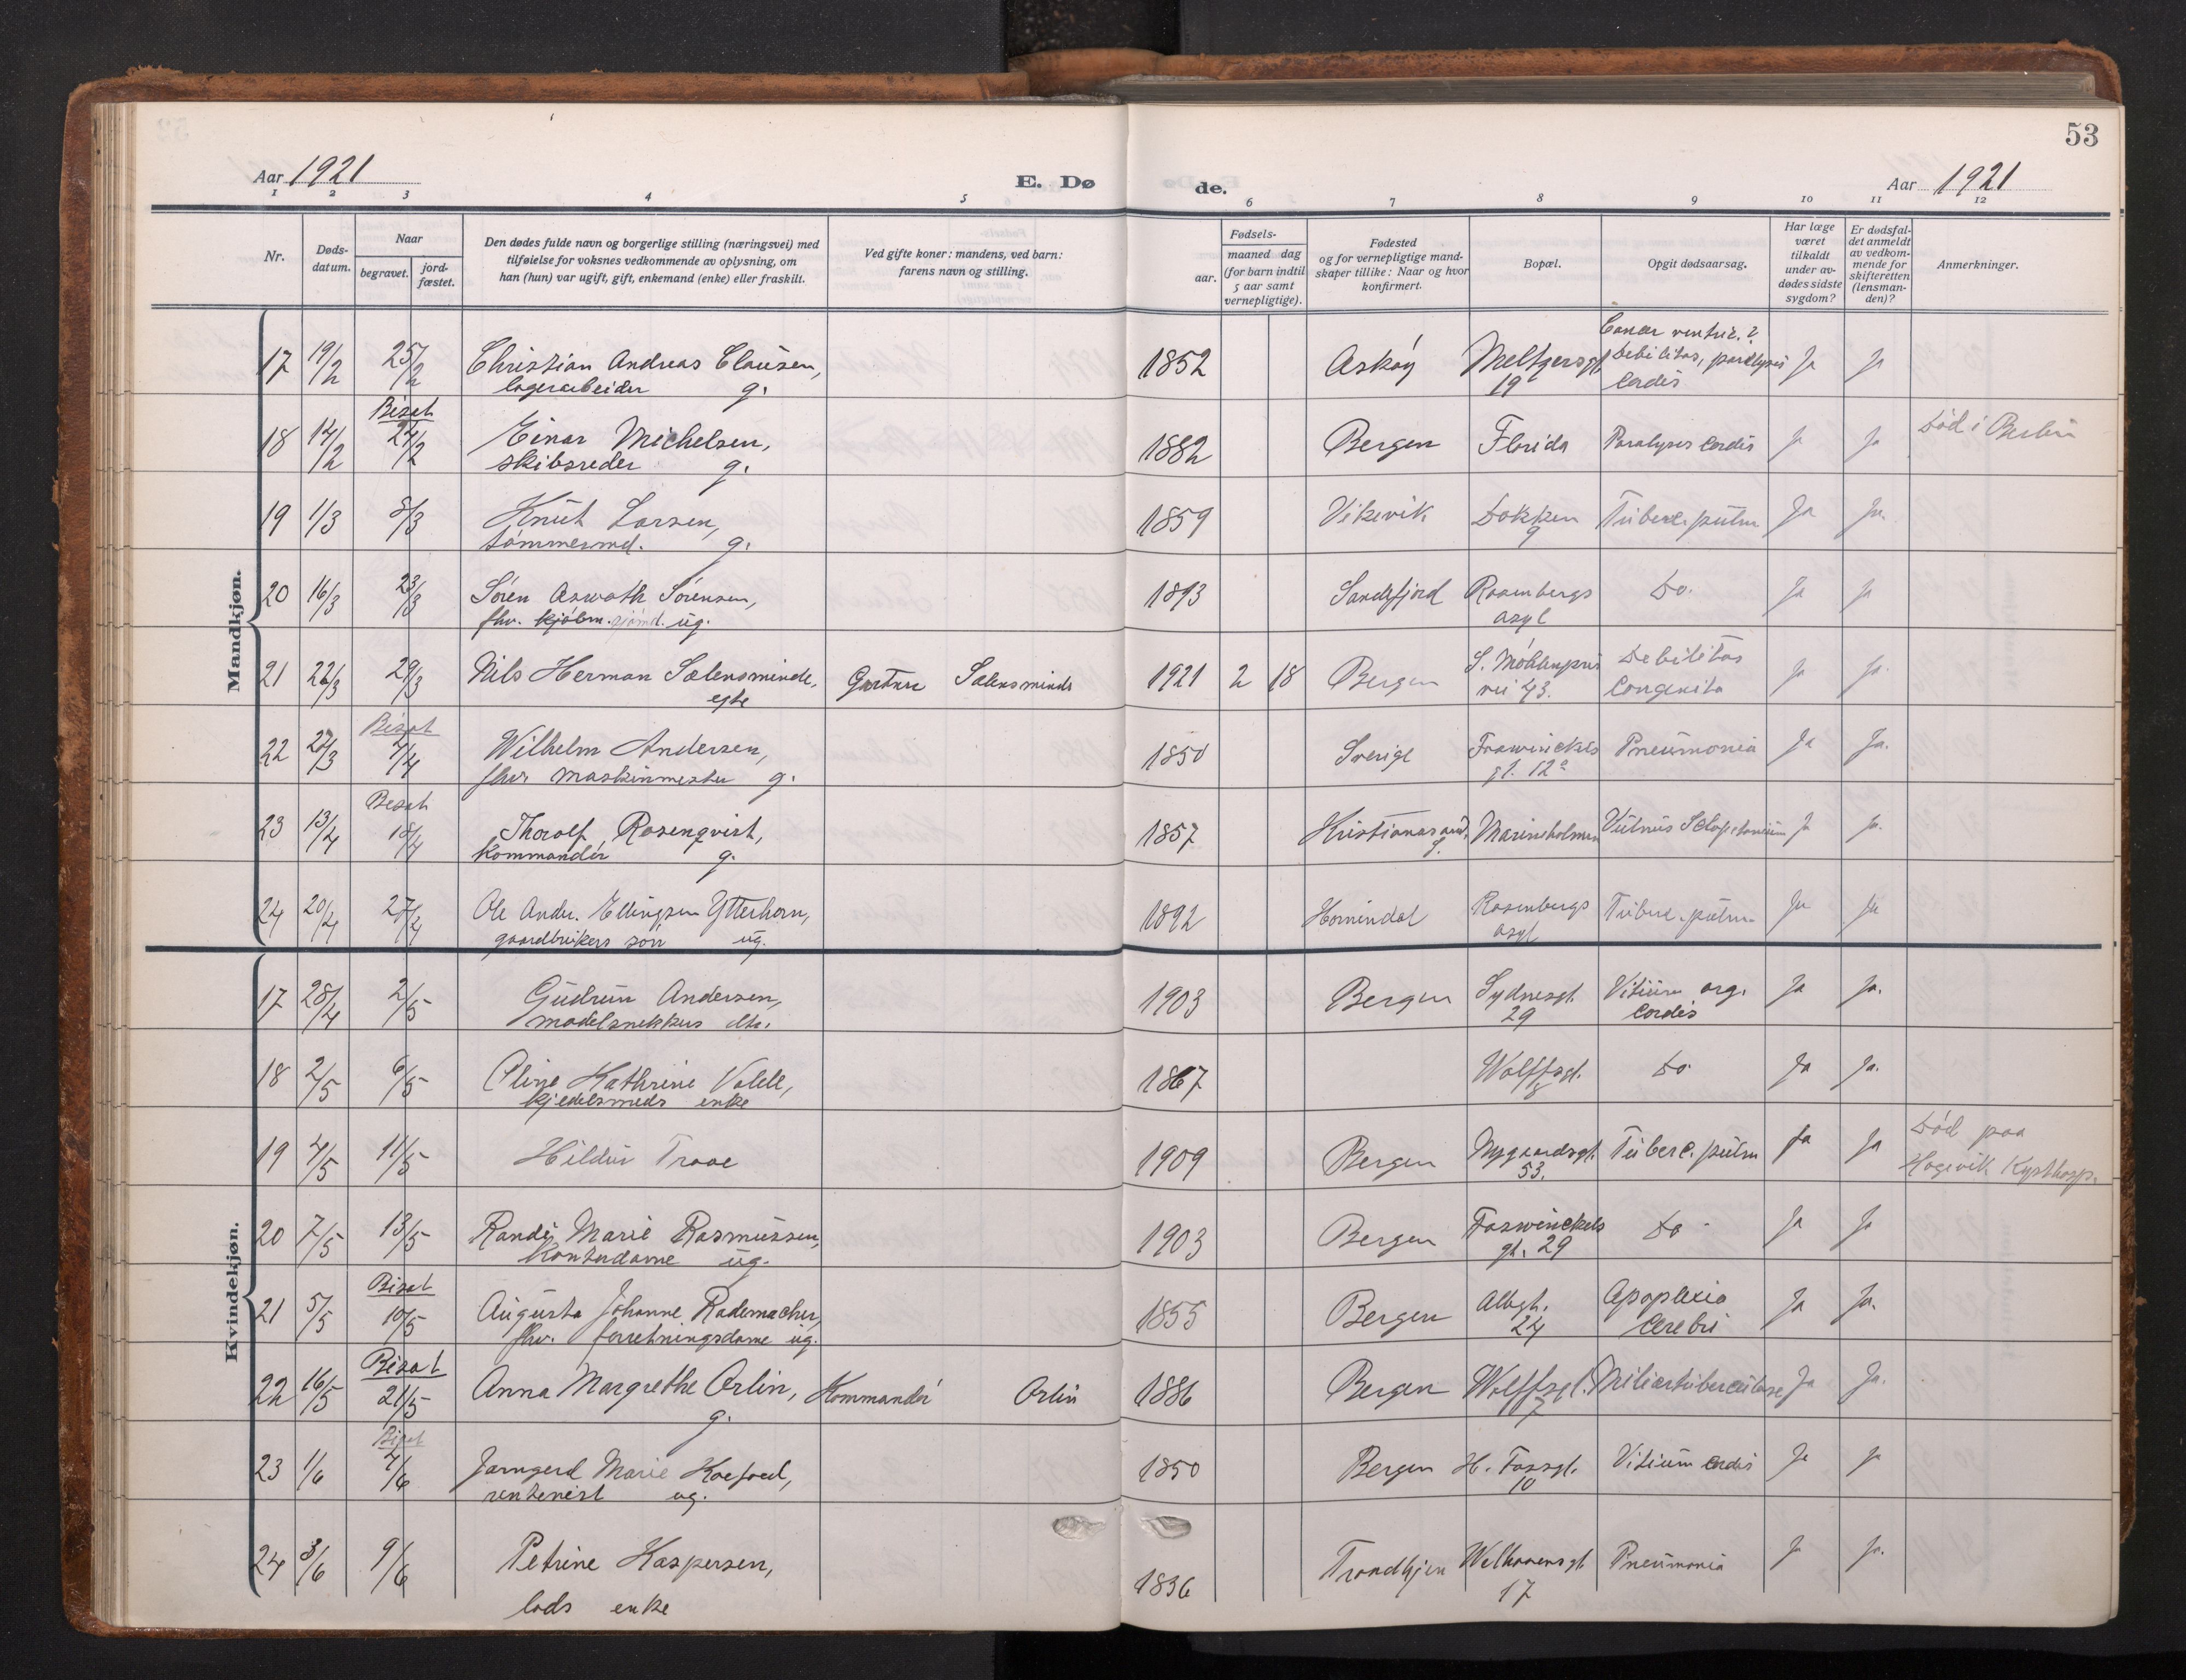 53
Aar 1921
E. Dø
de.
Aar 1921
1 2 3 4 5 6 7 8 9 10 11 12
Nr.
Døds-
datum.
Naar
begravet.
jord-
fæstet.
Den dødes fulde navn og borgerlige stilling (næringsvei) med
tilføielse for voksnes vedkommende av oplysning, om
han (hun) var ugift, gift, enkemand (enke) eller fraskilt.
Ved gifte koner: mandens, ved barn:
farens navn og stilling.
Fødsels-
aar.
maaned dag
(for barn indtil
5 aar samt
vernepligtige).
Fødested
og for vernepligtige mand-
skaper tillike: Naar og hvor
konfirmert.
Bopæl.
Opgit dødsaarsag.
Har læge
været
tilkaldt
under av-
dødes sidste
sygdom?
Er dødsfal-
det anmeldt
av vedkom-
mende for
skifteretten
(lensman-
den)?
Anmerkninger.
Mandkjøn.
17 19/2 25/2 Christian Andreas Clausen, 1852 Askøy Meltzersgt. Cancer ventric.? Ja Ja
lagerarbeider g. 19 Debilitas, paralysis
Cordis
Bisat
18 14/2 24/2 Einar Michelsen, 1882 Bergen Florida Paralysis Cordis Ja Ja Død i Berlin
skibsreder g.
19 1/3 8/3 Knut Larsen, 1859 Vikevik Dokken Tuberc. pulm Ja Ja.
tømmermd. g. 9
20 16/3 23/3 Søren Aswath Sørensen, 1893 Sandefjord Rosenbergs Do. Ja Ja
fhv. kjølm. sjømd. ug. asyl
21 22/3 29/3 Nils Herman Sælensminde, Gartner Sælensminde 1921 2 18 Bergen S. Møhlenpris Debilitas Ja Ja.
egte vei 43. Congenita
Bisat
22 27/3 7/4 Wilhelm Andersen, 1850 Sverige Foswinckels Pneumonia Ja Ja.
fhv. maskinmester g. gt. 12a
Bisat
23 13/4 18/4 Thorolf Rosenqvist, 1857 Kristianssund. Marineholmen Vulnus Sclopetarium Ja Ja.
Kommandør g.
24 20/4 27/4 Ole Andr. Ellingsen Ytterhorn, 1892 Hornindal Rosenbergs Tuberc. pulm. Ja Ja
gaardbrukers søn ug. asyl
Kvindekjøn.
17 28/4 2/5 Gudrun Andersen, 1903 Bergen Sydnesgt. Vitium org. Ja Ja.
modelsnekkers dtr. 29 Cordis
18 2/5 6/5 Oline Kathrine Valde, 1867 Wolffsgt. Do Ja Ja.
kjedelsmeds enke 8
19 4/5 11/5 Hildur Traae 1909 Bergen Nygaardsgt. Tuberc. pulm Ja Ja Død paa
53. Hagevik Kysthosp.
20 7/5 13/5 Randi Marie Rasmussen, 1903 Bergen Foswinckels Do - Ja Ja
Kontordame ug. gt. 29
Bisat
21 5/5 10/5 Augusta Johanne Rademacher, 1855 Bergen Allegt. Apoplexia Ja Ja.
fhv. forretningsdame ug. 24 Cerebri
Bisat
22 16/5 21/5 Anna Margrethe Orlin, Kommandør Orlin 1886 Bergen Wolffsgt. Miliærtuberculose Ja Ja.
g. 7
Bisat
23 1/6 7/6 Jarngerd Marie Koefoed, 1850 Bergen H. Fossgt. Vitium Cordis Ja Ja
rentenist ug. 10
24 3/6 9/6 Petrine Kaspersen, 1836 Trondhjem Welhavensgt. Pneumonia Ja Ja.
lods enke 17